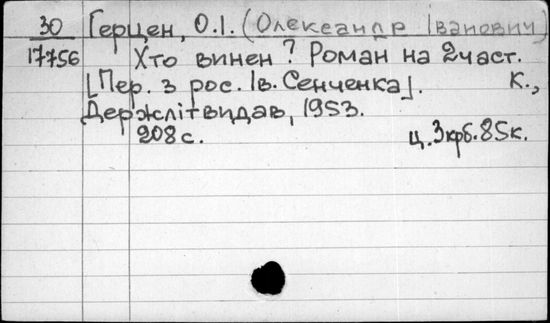 30 Герцен, О.І. (Олександр Іванович)
17756 Хто винен? Роман на 2 част.
[Пер. з рос. Ів. Сенченка]. К.,
Держлітвидав, 1953.
208 с. ц. 3 крб. 85 к.